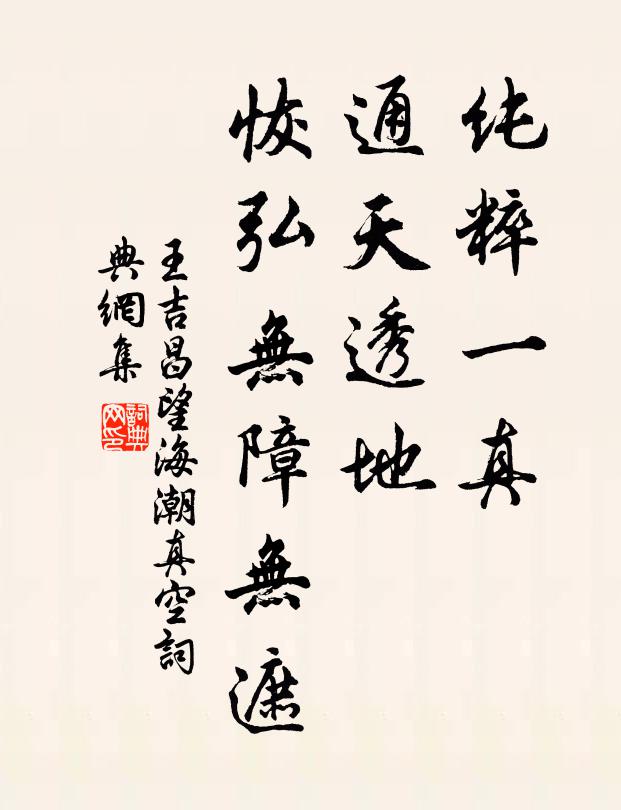 纯粹一真
通天透地
恢弘無障無遮
王吉昌望海潮真空詞
典網集
詞典网印